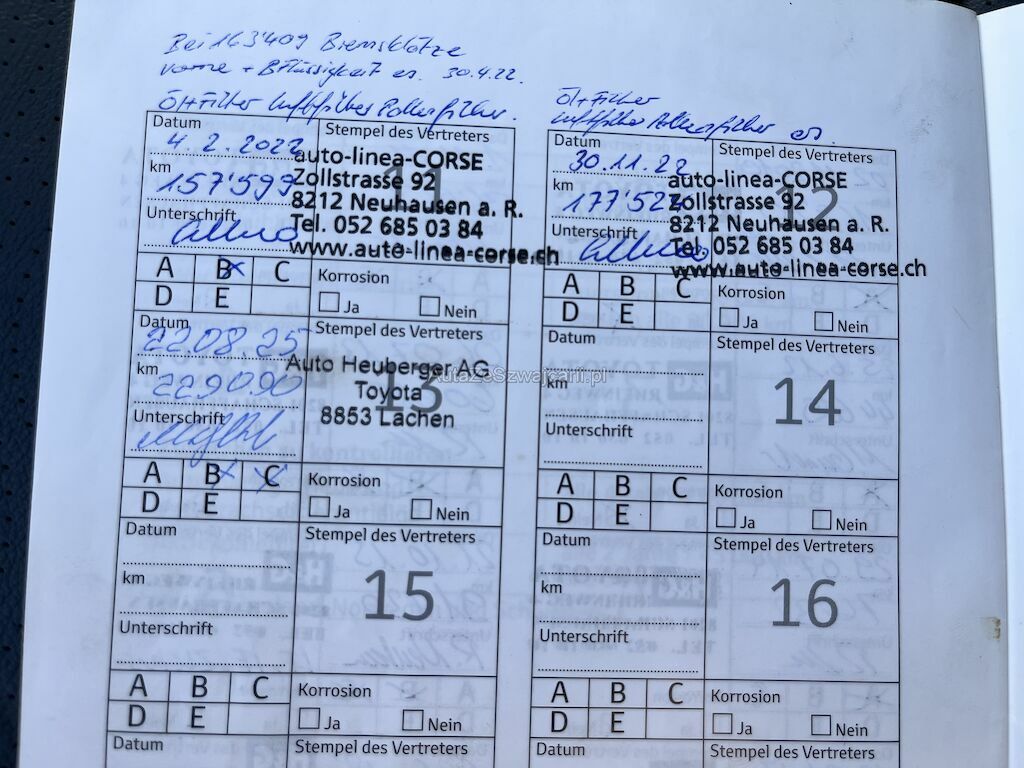 Bei 163'409 Bremsklötze
vorne + BFlüssigkeit er. 30.4.22.
Öl+Filter Luftfilter Pollenfilter.
Datum
4.2.2022
km
157'599
Unterschrift
Stempel des Vertreters
11
auto-linea-CORSE
Zollstrasse 92
8212 Neuhausen a. R.
Tel. 052 685 03 84
www.auto-linea-corse.ch
A B C
D E
Korrosion
Ja Nein
Öl+Filter
Luftfilter Pollenfilter er.
Datum
30.11.22
km
Unterschrift
Stempel des Vertreters
12
auto-linea-CORSE
Zollstrasse 92
8212 Neuhausen a. R.
Tel. 052 685 03 84
www.auto-linea-corse.ch
A B C
D E
Korrosion
Ja Nein
Datum
22.08.25
km
229090
Unterschrift
Stempel des Vertreters
13
Auto Heuberger AG
Toyota
8853 Lachen
A B C
D E
Korrosion
Ja Nein
Datum
km
Unterschrift
Stempel des Vertreters
14
A B C
D E
Korrosion
Ja Nein
Datum
km
Unterschrift
Stempel des Vertreters
15
A B C
D E
Korrosion
Ja Nein
Datum
km
Unterschrift
Stempel des Vertreters
16
A B C
D E
Korrosion
Ja Nein
Datum
Stempel des Vertreters
Datum
Stempel des Vertreters